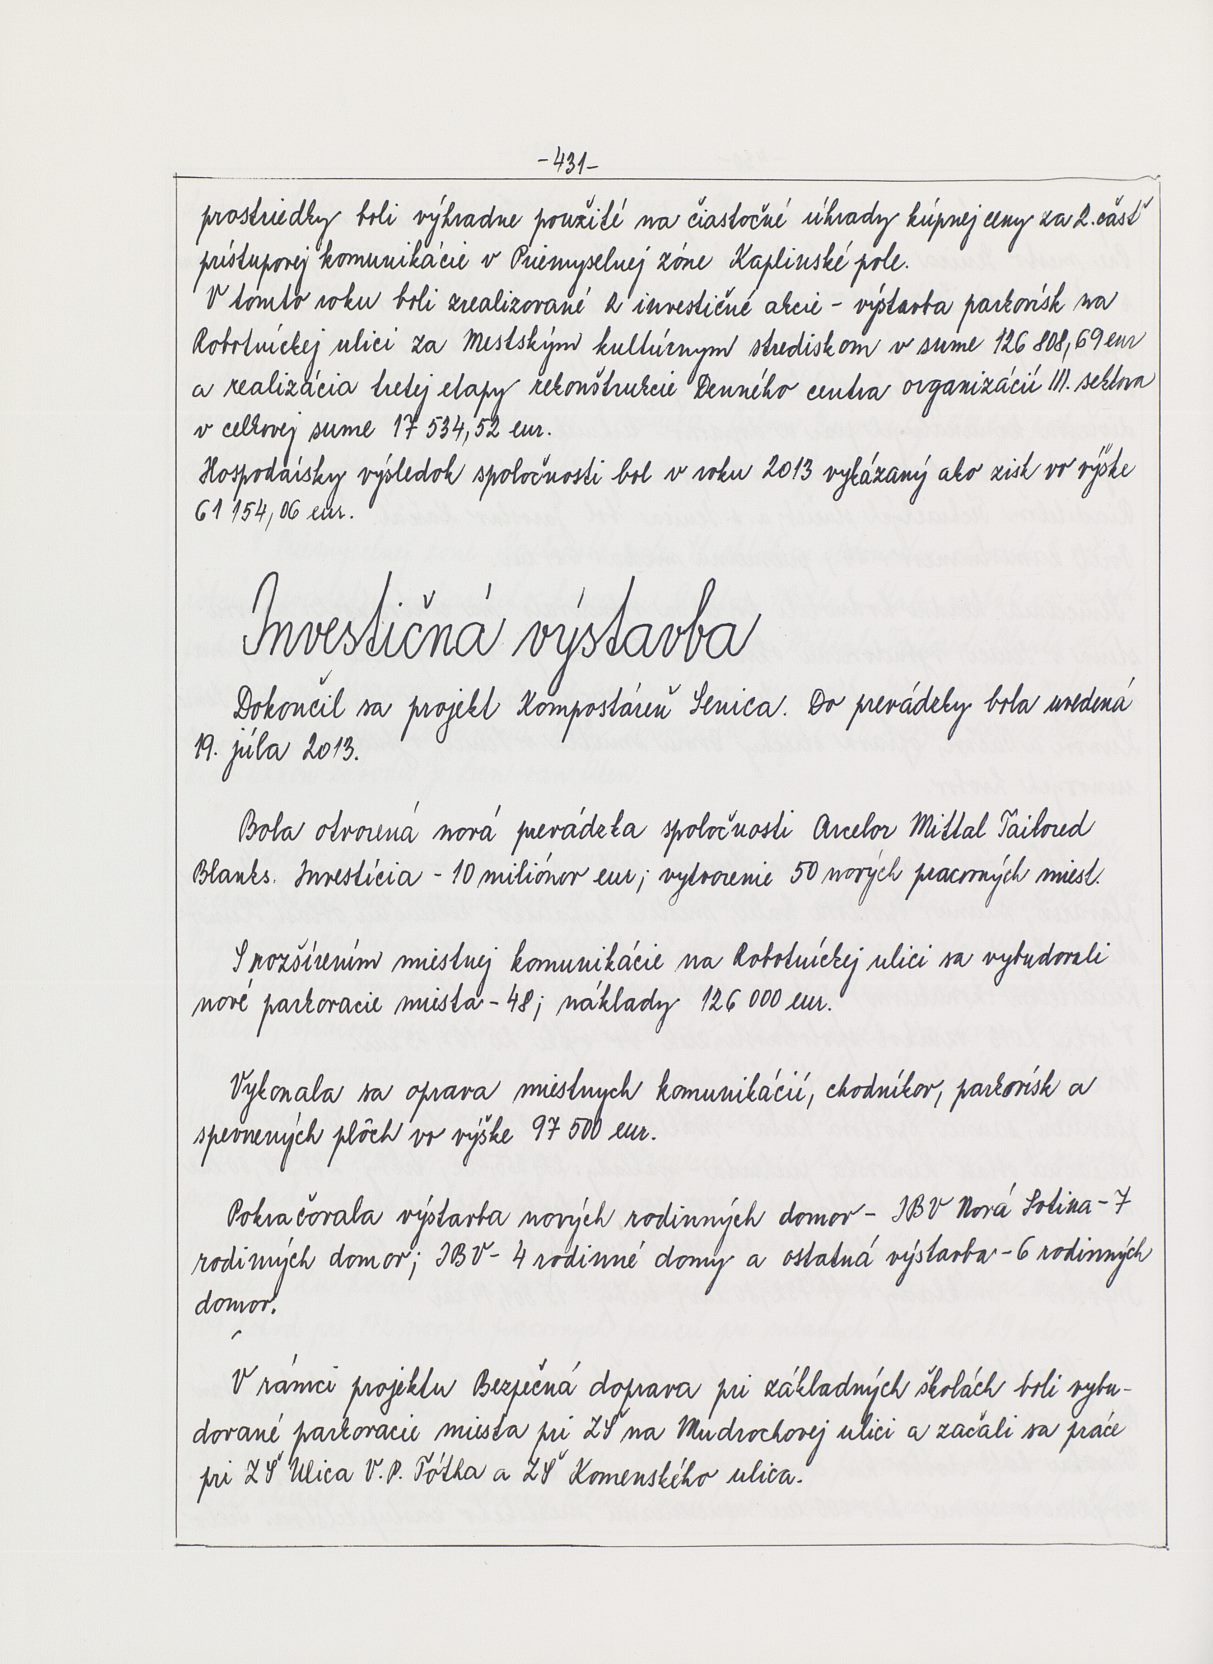 -431-
prostriedky boli výhradne použité na čiastočné úhrady kúpnej ceny za 2. časť
prístupovej komunikácie v Priemyselnej zóne Kaplinské pole.
V tomto roku boli zrealizované 2 investičné akcie - výstavba parkovísk na
Robotníckej ulici za Mestským kultúrnym strediskom v sume 126 808,69 eur
a realizácia tretej etapy rekonštrukcie Denného centra organizácií III. sektora
v celkovej sume 17 534,52 eur.
Hospodársky výsledok spoločnosti bol v roku 2013 vykázaný ako zisk vo výške
61 154,06 eur.
Investičná výstavba
Dokončil sa projekt Kompostáreň Senica. Do prevádzky bola uvedená
19. júla 2013.
Bola otvorená nová prevádzka spoločnosti Arcelor Mittal Tailored
Blanks. Investícia - 10 miliónov eur; vytvorenie 50 nových pracovných miest.
S rozšírením miestnej komunikácie na Robotníckej ulici sa vybudovali
nové parkovacie miesta - 48; náklady 126 000 eur.
Vykonala sa oprava miestnych komunikácií, chodníkov, parkovísk a
spevnených plôch vo výške 97 500 eur.
Pokračovala výstavba nových rodinných domov - IBV Nová Sotina - 7
rodinných domov; IBV - 4 rodinné domy a ostatná výstavba - 6 rodinných
domov.
V rámci projektu Bezpečná doprava pri základných školách boli vybu-
dované parkovacie miesta pri ZŠ na Mudrochovej ulici a začali sa práce
pri ZŠ Ulica V. P. Tótha a ZŠ Komenského ulica.